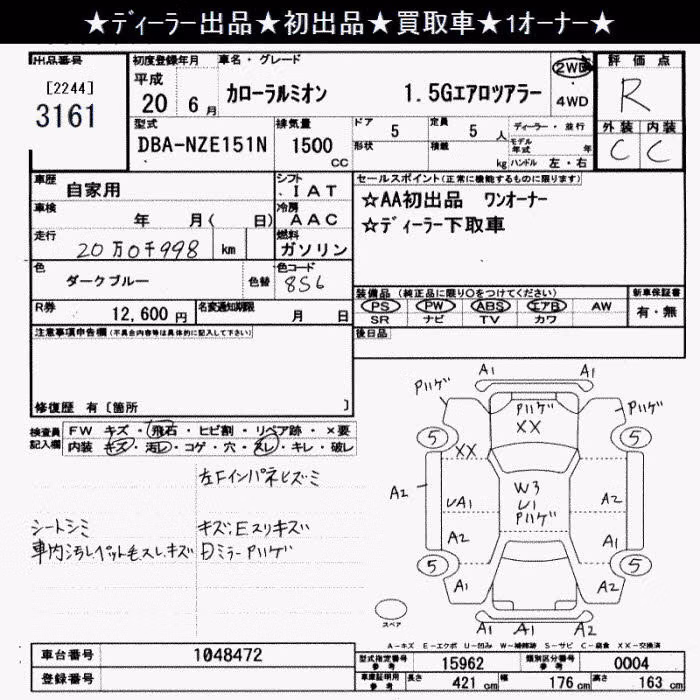 ★ディーラー出品★初出品★買取車★1オーナー★
出品番号
[2244]
3161
初度登録年月
平成
20 6 月
車名・グレード
カローラルミオン 1.5Gエアロツアラー
2WD
・
4WD
評価点
R
外装 内装
C C
型式
DBA-NZE151N
排気量
1500
CC
ドア 5
形状
定員 5 人
積載 kg
ディーラー・並行
モデル年式 年
ハンドル 左・右
車歴
自家用
シフト
IAT
車検
年 月( 日)
冷房
AAC
走行
20万0千998 km
燃料
ガソリン
色
ダークブルー
色替
色コード
8S6
R券
12,600 円
名変通知期限
月 日
セールスポイント(正常に機能するものに限ります)
☆AA初出品 ワンオーナー
☆ディーラー下取車
装備品(純正品に限り○をつけてください)
PS PW ABS エアB AW
SR ナビ TV カワ
新車保証書
有・無
後日品
注意事項申告欄(不具合内容等は具体的に記入して下さい)
修復歴 有 [箇所 ]
検査員記入欄
FW キズ・飛石・ヒビ割・リペア跡・×要
内装 キズ・汚レ・コゲ・穴・スレ・キレ・破レ
左Fインパネヒズミ
シートシミ
キズ:Eスリキズ
車内汚レペット毛スレ.キズ
Dミラー Pハゲ
A1 A1
Pハゲ Pハゲ
Pハゲ
XX
5 5
XX
A2
UA1
W3
U1
Pハゲ
A1
A2
A2
5 5
A1 A1
A2 A1 A2
スペア
A-キズ E-エクボ U-凹み W-補修跡 S-サビ C-腐食 XX-交換済
車台番号
1048472
登録番号
型式指定番号
参考
15962
類別区分番号
参考
0004
車庫証明用
参考
長さ 421 cm
幅 176 cm
高さ 163 cm